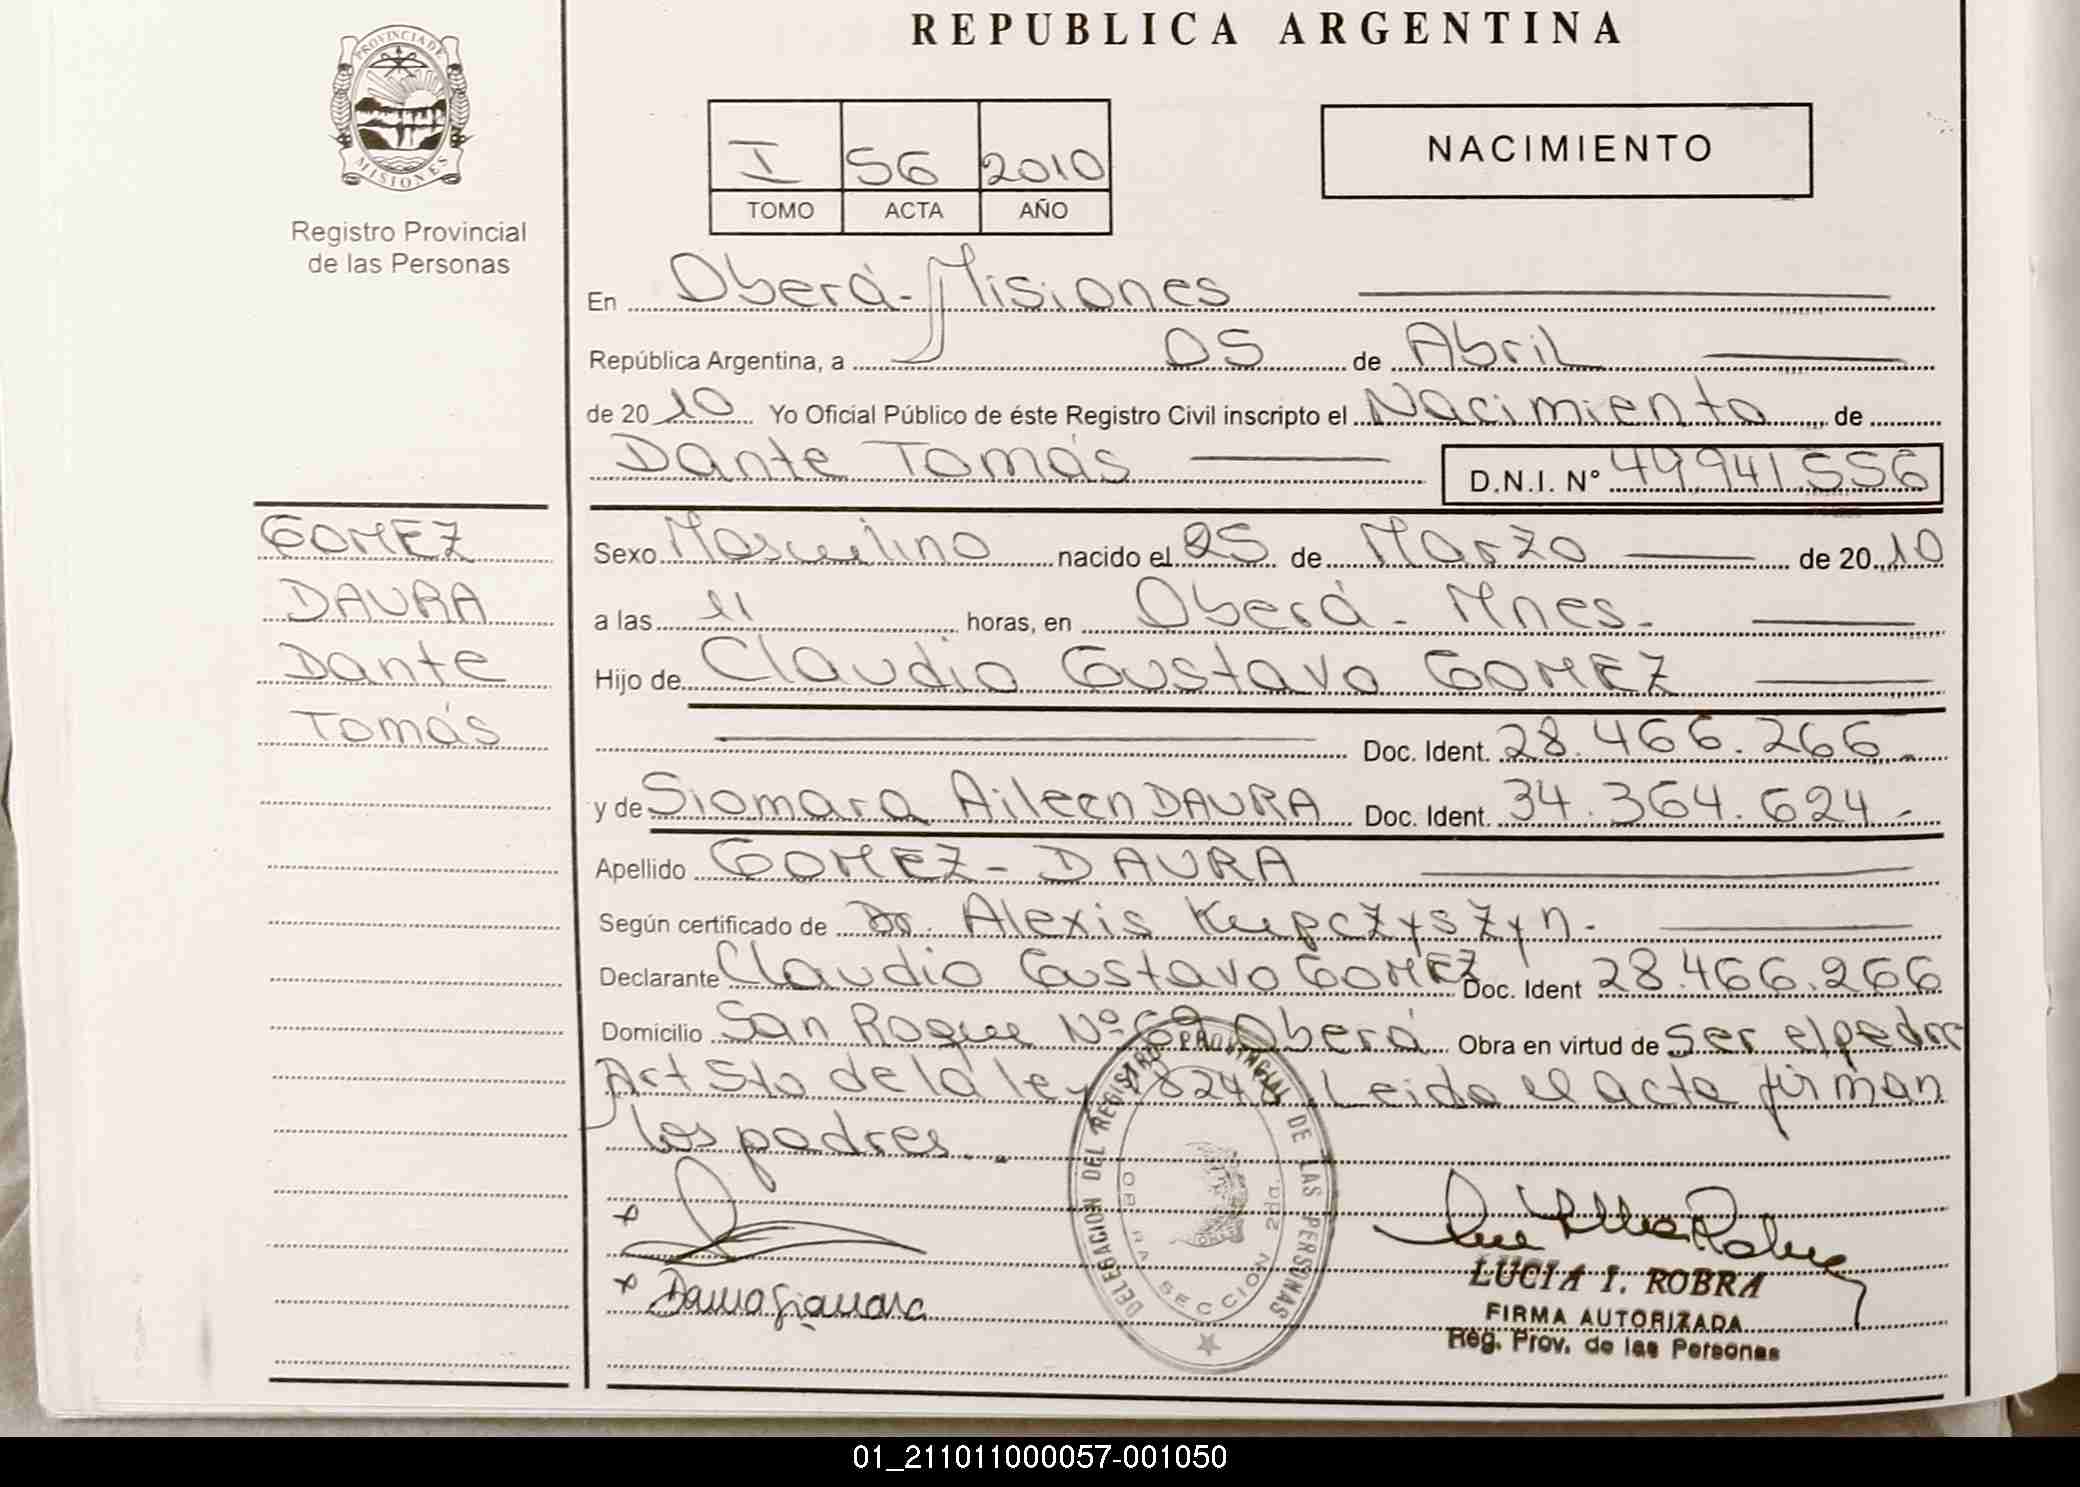 REPUBLICA ARGENTINA
PROVINCIA DE
MISIONES
Registro Provincial
de las Personas
I 56 2010
TOMO ACTA AÑO
NACIMIENTO
En Oberá - Misiones
República Argentina, a 05 de Abril
de 20 10 Yo Oficial Público de éste Registro Civil inscripto el Nacimiento de
Dante Tomás D.N.I. Nº 49.941.556
GOMEZ
DAURA
Dante
Tomás
Sexo Masculino nacido el 25 de Marzo de 20 10
a las 11 horas, en Oberá - Mnes.
Hijo de Claudio Gustavo GOMEZ
Doc. Ident. 28.466.266.-
y de Siomara Aileen DAURA Doc. Ident. 34.364.624.-
Apellido GOMEZ - DAURA
Según certificado de Dr. Alexis Kupczyszyn.
Declarante Claudio Gustavo GOMEZ Doc. Ident 28.466.266
Domicilio San Roque Nº 69 Oberá Obra en virtud de ser el padre
Art 5to de la ley 18248. Leida el acta firman
los padres.-
DELEGACION DEL REGISTRO PROVINCIAL DE LAS PERSONAS
OBERA SECCION 2da.
Daura Siomara
LUCIA I. ROBRA
FIRMA AUTORIZADA
Reg. Prov. de las Personas
01_211011000057-001050